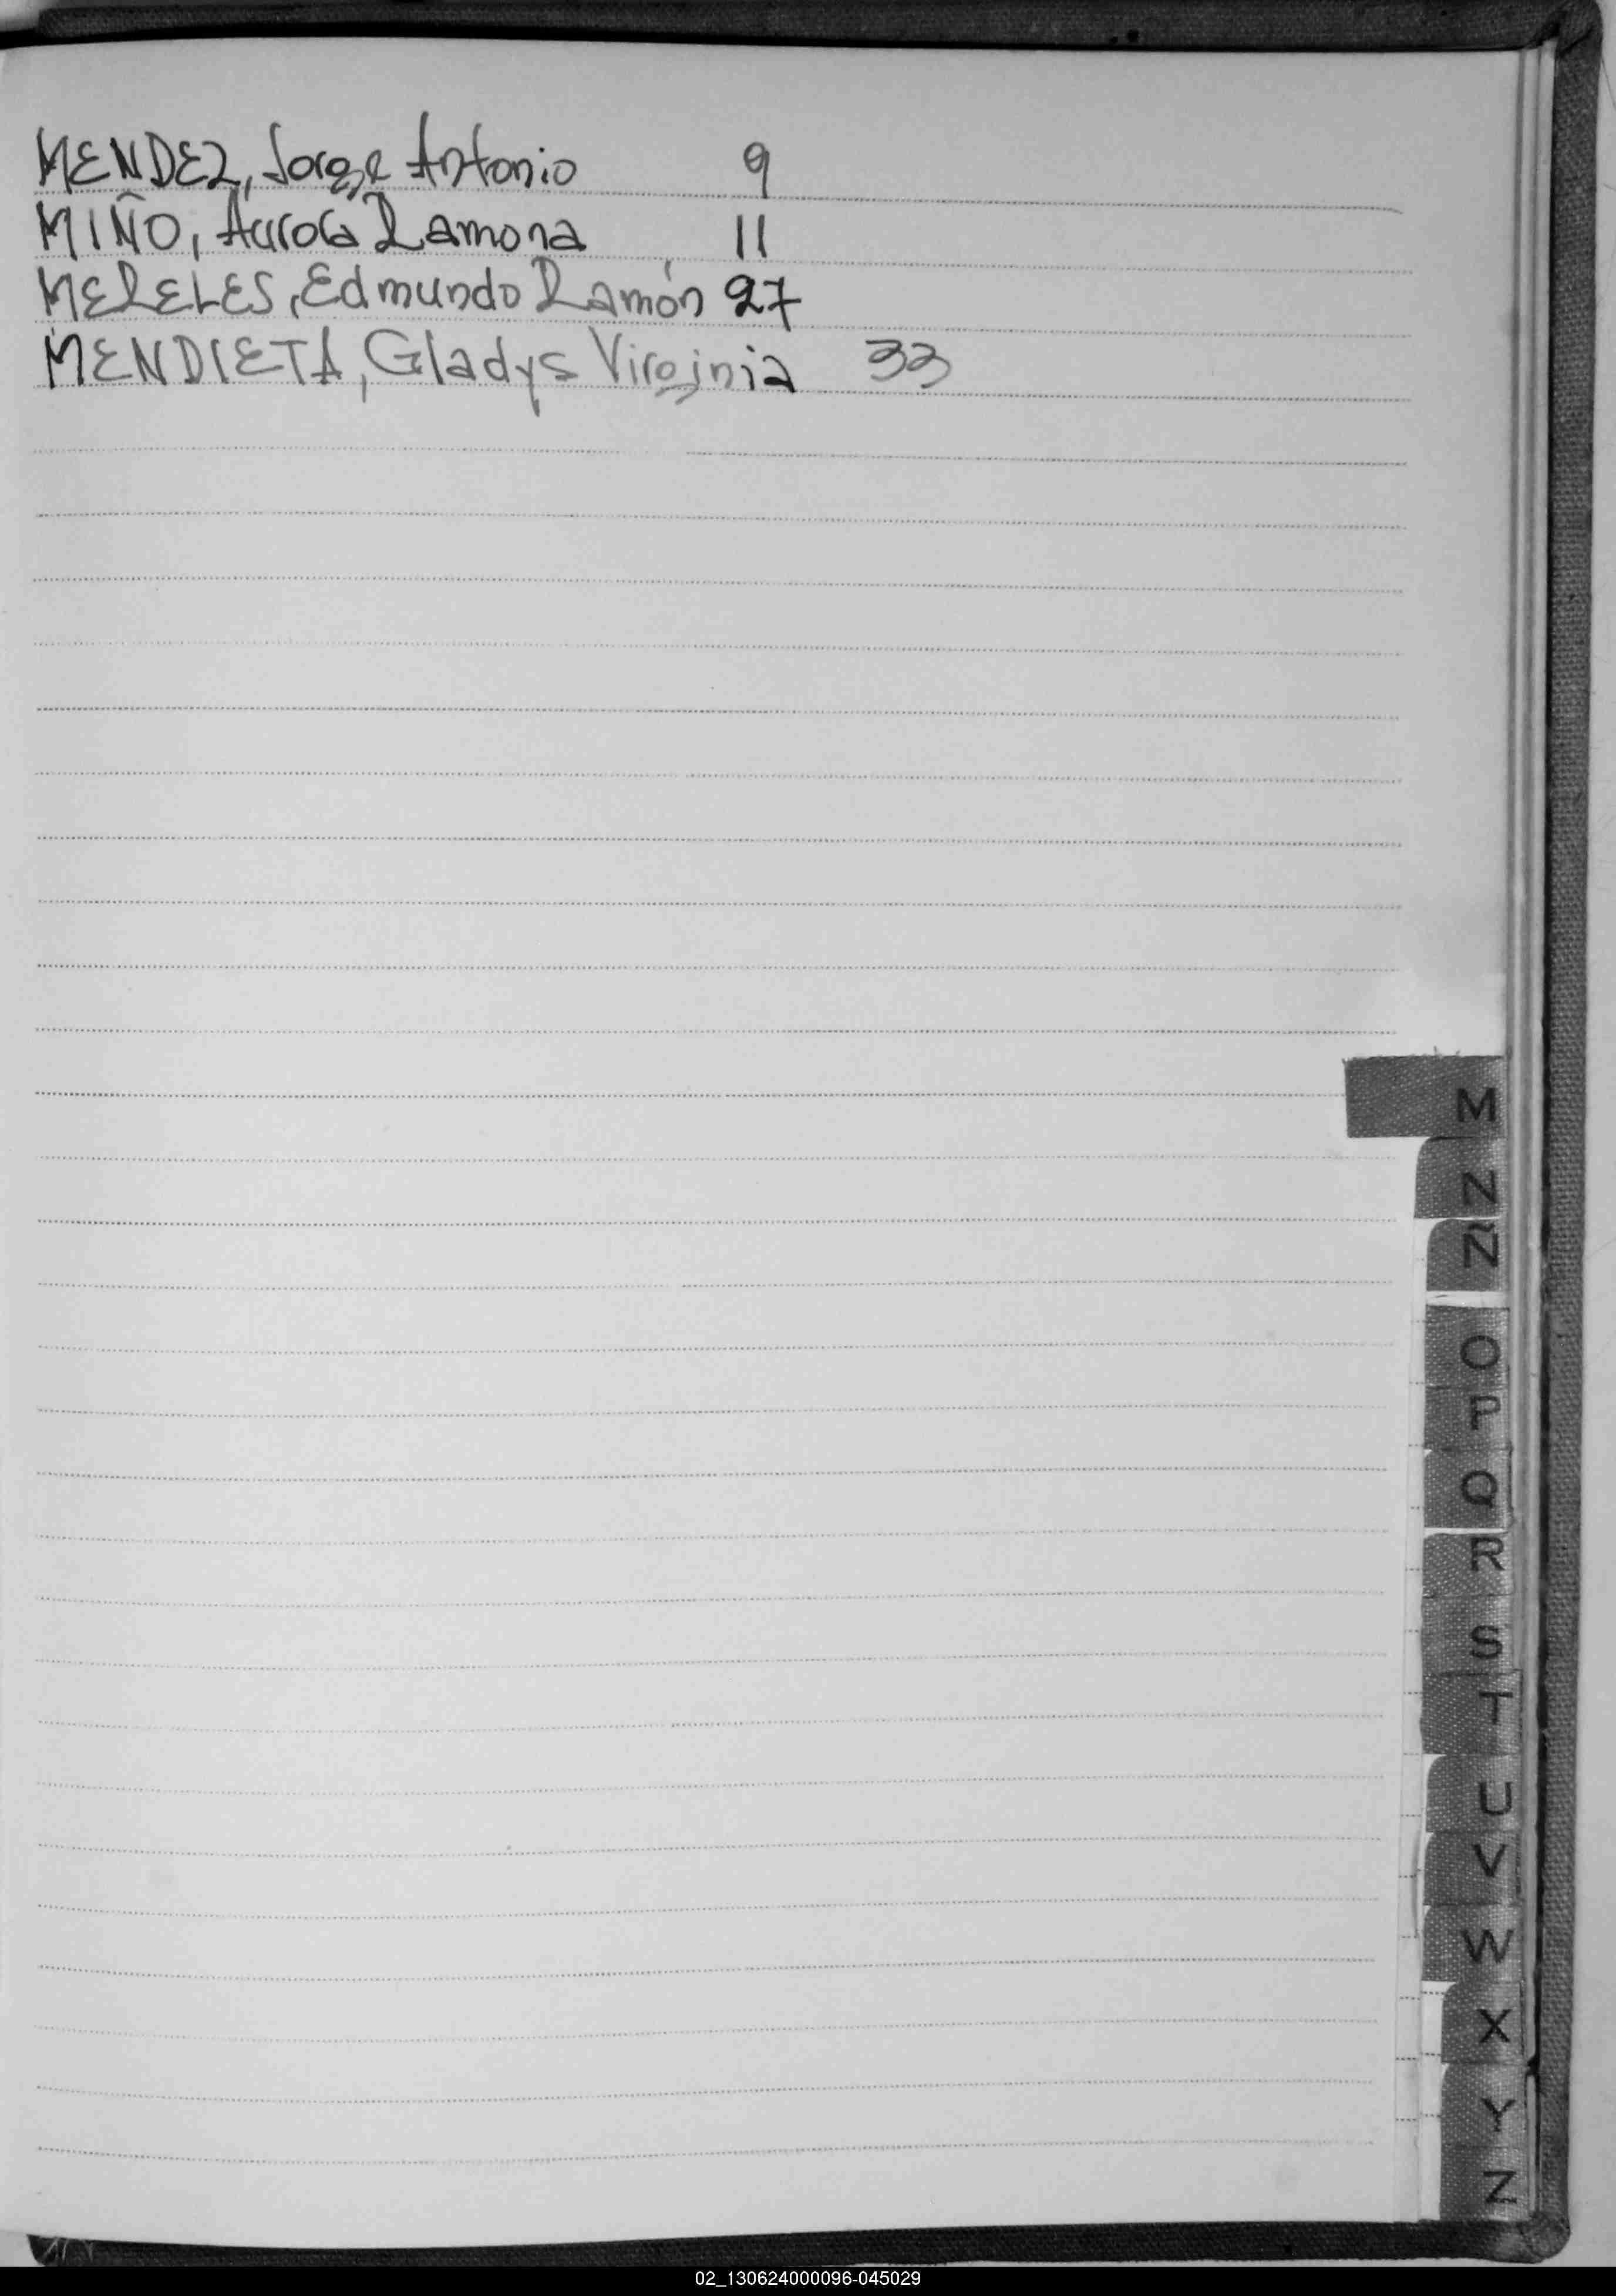 MENDEZ, Jorge Antonio 9
MIÑO, Aurora Ramona 11
MERELES, Edmundo Ramón 27
MENDIETA, Gladys Virginia 33
M
N
Ñ
O
P
Q
R
S
T
U
V
W
X
Y
Z
02_130624000096-045029